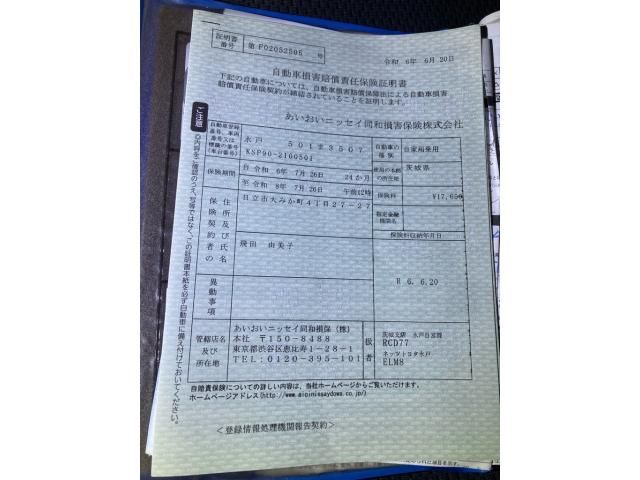 証明書番号 第 F02052506 号
令和 6年 6月 20日
自動車損害賠償責任保険証明書
下記の自動車については、自動車損害賠償保障法による自動車損害
賠償責任保険契約が締結されていることを証明します。
あいおいニッセイ同和損害保険株式会社
ご注意 ◎内容をご確認のうえ、写等ではなく、この証明書本紙を必ず自動車に備え付けておいてください。
自動車登録番号、車両番号又は標識の番号(車台番号)
水戸 501ま3507
KSP90-2100501
自動車の種別 自家用乗用
使用の本拠の所在地 茨城県
保険期間
自 令和 6年 7月 26日 24か月
至 令和 8年 7月 26日 午前12時
保険料 ¥17,650
保険契約者の住所及び氏名
日立市大みか町4丁目27-27
飛田 由美子
指定金融機関名
保険料収納年月日
R 6. 6.20
異動事項
管轄店名及び所在地
あいおいニッセイ同和損保(株)
本社 〒150-8488
東京都渋谷区恵比寿1-28-1
TEL:0120-395-101
扱者
茨城支店 水戸自営課
RCD77
ネッツトヨタ水戸
ELM8
自賠責保険についての詳しい内容は、当社ホームページからご覧いただけます。
ホームページアドレス(http://www.aioinissaydowa.co.jp/)
<登録情報処理機関報告契約>